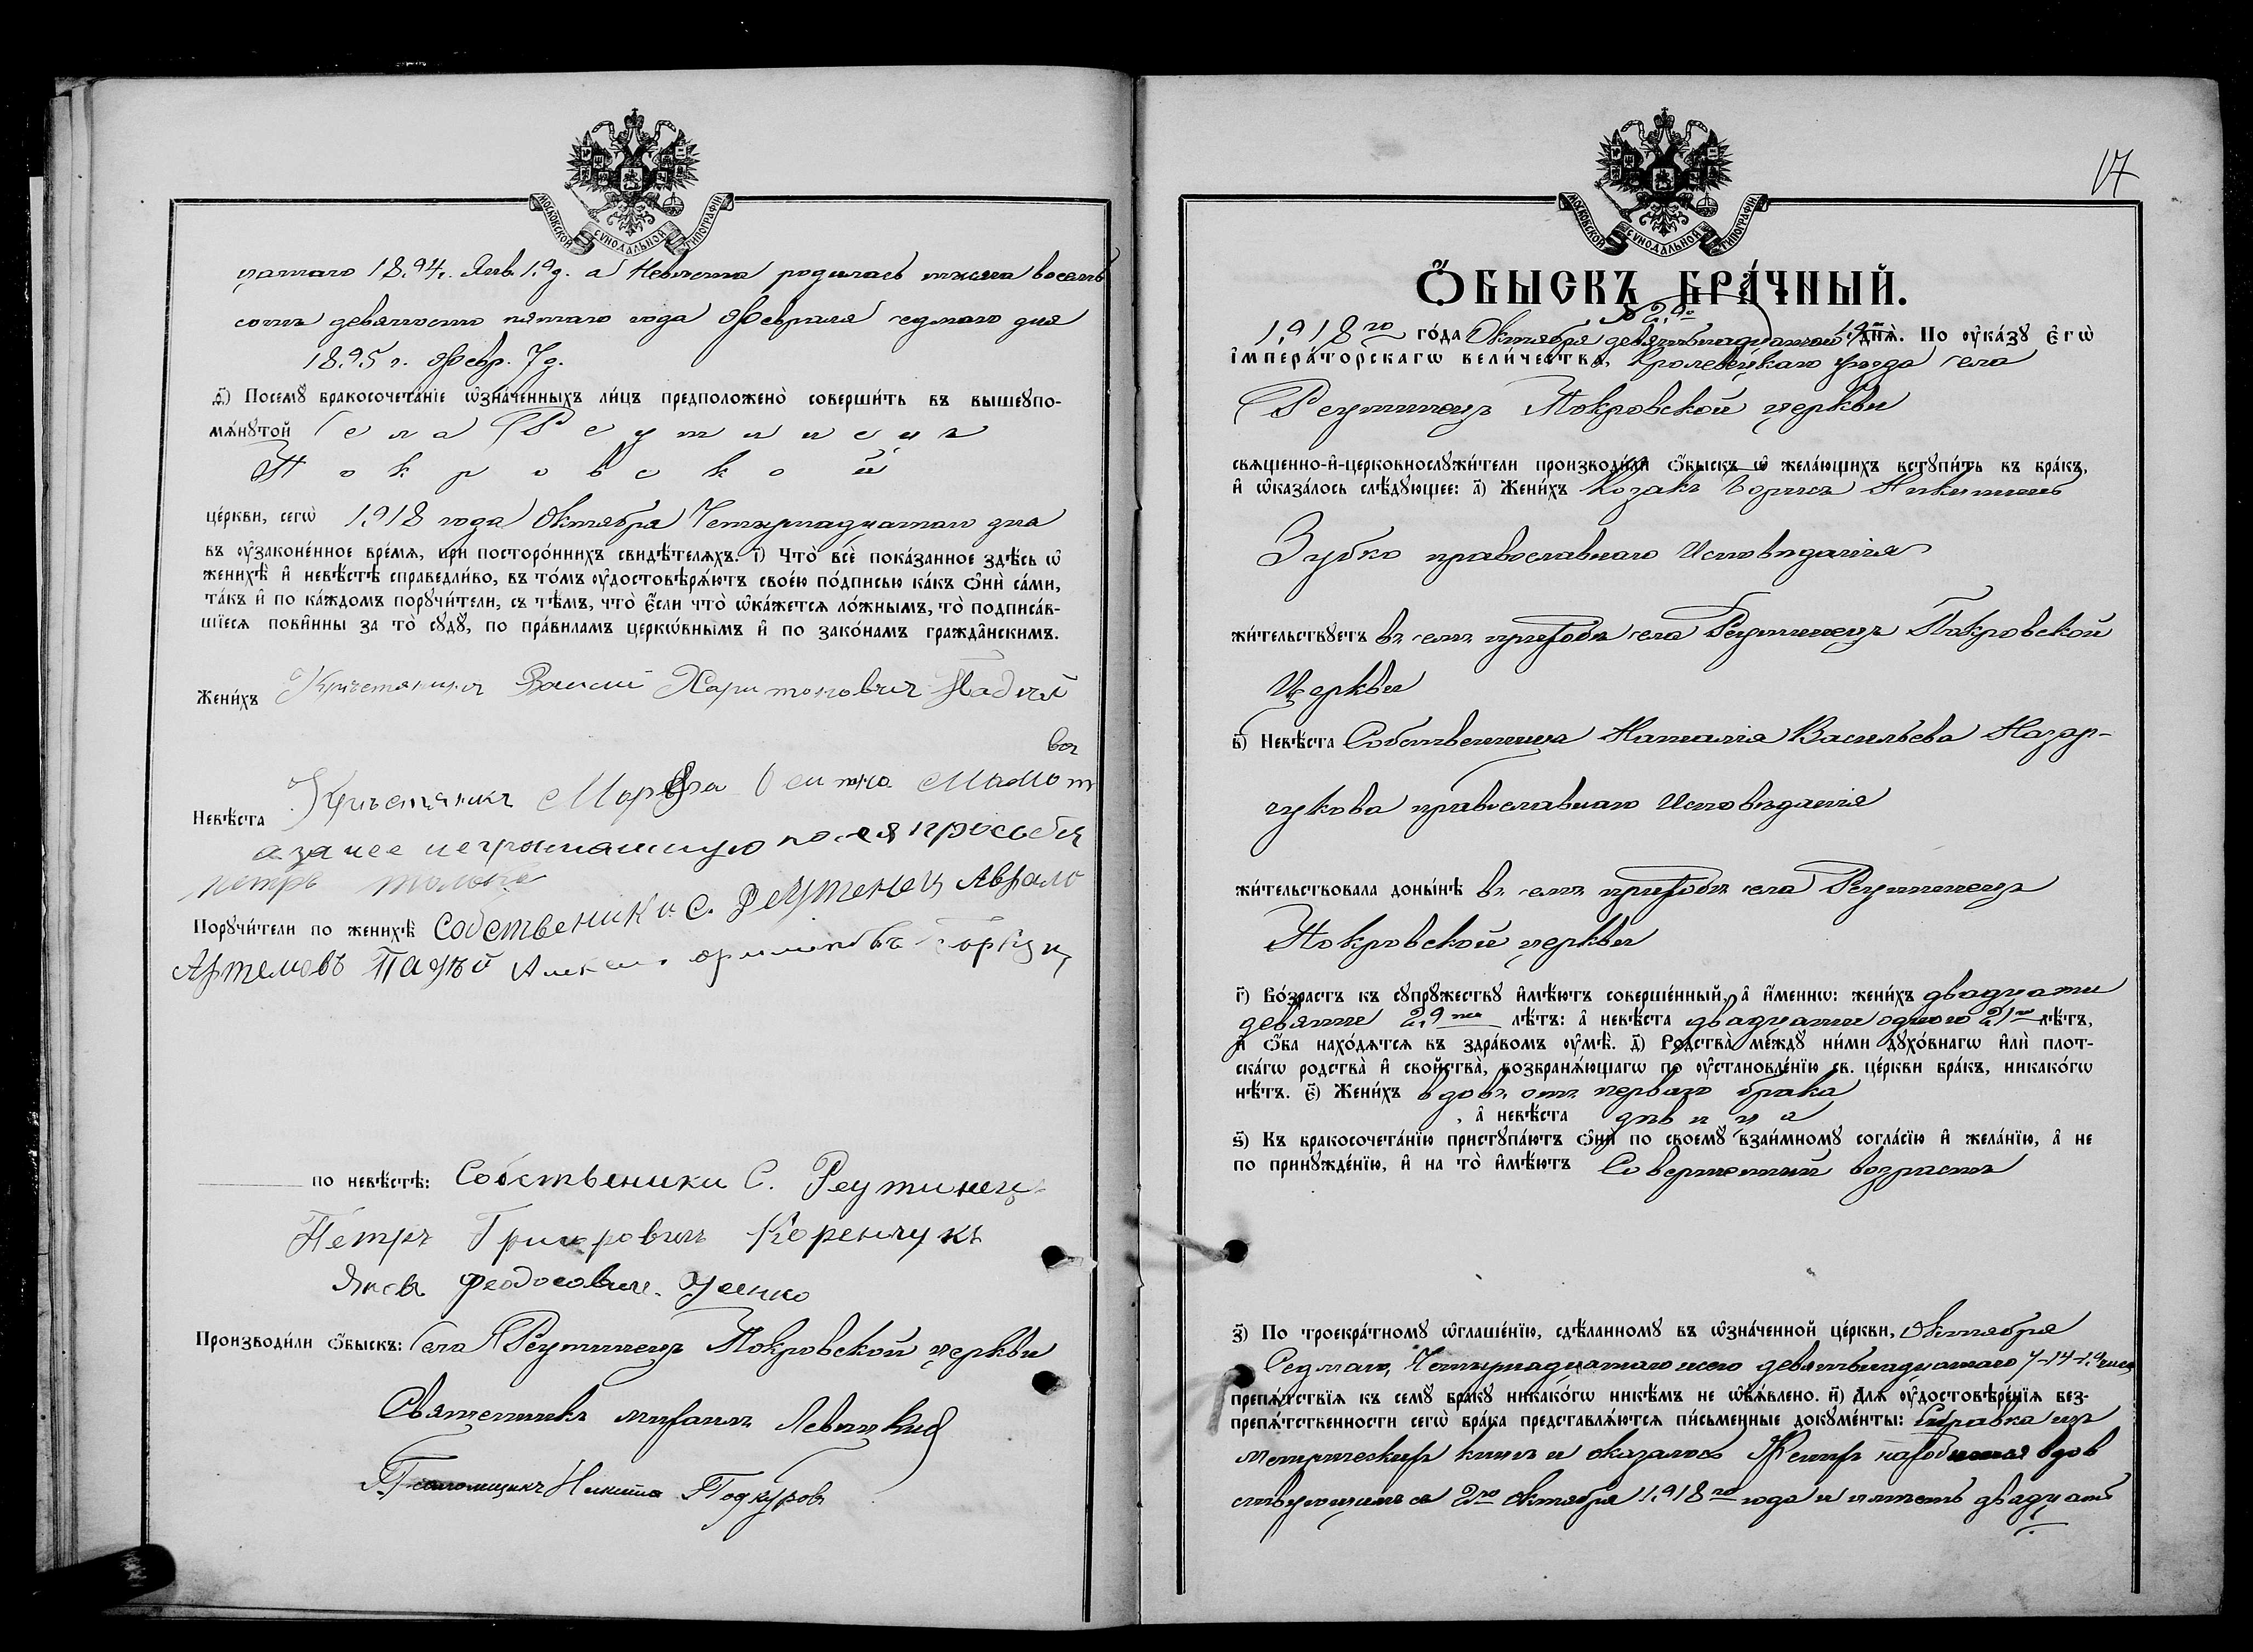 МОСКОВСКОЙ СѴНОДАЛЬНОЙ ТИПОГРАФІИ
1894 г. Янв. 19 д. а Невѣста родилась тысяча восемь
сотъ девяносто пятаго года Февраля седмаго дня
1895 г. Февр. 7 д.
д҃і) Посемꙋ̀ бракосочета́нїе ѡ҆зна́ченныхъ ли́цъ предположено̀ соверши́ть въ вышеꙋпо-
мѧ́нꙋтой Села Реутинецъ
Покровской
це́ркви, сегѡ̀ 1918 года Октября Четырнадцатаго дня
въ ᲂу҆законе́нное вре́мѧ, при посторо́ннихъ свидѣ́телѧхъ. і҃) Что̀ всѐ пока́занное здѣ́сь ѡ҆
женихѣ̀ и҆ невѣ́стѣ справедли́во, въ то́мъ ᲂу҆достовѣрѧ́ютъ свое́ю по́дписью ка́къ ѻ҆нѝ са́ми,
та́къ и҆ по ка́ждомъ порꙋчи́тели, съ тѣ́мъ, что̀ є҆́сли что̀ ѡ҆ка́жетсѧ ло́жнымъ, то̀ подписа́в-
шїесѧ пови́нны за то̀ сꙋдꙋ̀, по пра́виламъ церкѡ́внымъ и҆ по зако́намъ гражда̂нскимъ.
Жени́хъ Харитоновичъ Падій
Невѣ́ста Марфа Мамот
ва
а за нее неграмотную по ея просьбѣ
Петръ
Порꙋчи́тели по женихѣ̀ Собственики С. Реутенец
Артемовъ Падѣй
по невѣ́стѣ: Собственики С. Реутинец
Петръ Григоровичъ Керенчукъ
Яковъ Феодосовичъ Усенко
Производи́ли ѻ҆́быскъ: Села Реутинецъ Покровской церкви
Священникъ Михаилъ Левицкий
Псаломщикъ Никита Подкуровъ
17
МОСКОВСКОЙ СѴНОДАЛЬНОЙ ТИПОГРАФІИ
Ѻ҆́БЫСКЪ БРА́ЧНЫЙ.
1918го го́да Октября девятьнадцатаго 19го днѧ̀. По ᲂу҆ка́зꙋ Є҆гѡ̀
І҆мпера́торскагѡ вели́чества, Кролевецкаго уѣзда села
Реутинецъ Покровской церкви
свѧще́нно-и҆-церковнослꙋжи́тели производи́ли ѻ҆́быскъ ѡ҆ жела́ющихъ встꙋпи́ть въ бра́къ,
и҆ ѡ҆каза́лось слѣ́дꙋющее: а҃) Жени́хъ Козакъ Борисъ Никитинъ
Зубко православнаго Исповѣданія
жи́тельствꙋетъ въ семъ приходѣ села Реутинецъ Покровской
Церкви
в҃) Невѣ́ста Собственница Наталія Васильева Назар-
чукова православнаго Исповѣданія
жи́тельствовала доны́нѣ въ семъ приходѣ села Реутинецъ
Покровской церкви
г҃) Во́зрастъ къ сꙋпрꙋ́жествꙋ и҆мѣ́ютъ соверше́нный, а҆ и҆́меннѡ: жени́хъ двадцати
девяти 29ти лѣ́тъ: а҆ невѣ́ста двадцати одного 21го лѣ́тъ,
и҆ ѻ҆́ба нахо́дѧтсѧ въ здра́вомъ ᲂу҆мѣ̀. д҃) Родства̀ ме́ждꙋ ни́ми дꙋхо́внагѡ и҆лѝ плот-
ска́гѡ родства̀ и҆ свойства̀, возбранѧ́ющагѡ по ᲂу҆становле́нїю св. це́ркви бра́къ, никако́гѡ
нѣ́тъ. є҃) Жени́хъ вдовъ отъ перваго брака
, а҆ невѣ́ста дѣвица
ѕ҃) Къ бракосочета́нїю пристꙋпа́ютъ ѻ҆нѝ по своемꙋ̀ взаи́мномꙋ согла́сїю и҆ жела́нїю, а҆ не
по принꙋжде́нїю, и҆ на то̀ и҆мѣ́ютъ Совершенный возрастъ
з҃) По троекра́тномꙋ ѡ҆глаше́нїю, сдѣ́ланномꙋ въ ѡ҆зна́ченной це́ркви, Октября
Седмаго, Четырнадцатаго девятьнадцатаго 7-14-19
препѧ́тствїѧ къ семꙋ̀ бра́кꙋ никако́гѡ никѣ́мъ не ѡ҆б̾ѧ́влено. и҃) Длѧ̀ ᲂу҆достовѣре́нїѧ без-
препѧ́тственности сегѡ̀ бра́ка представлѧ́ютсѧ пи́сьменные докꙋме́нты: Справка изъ
метрическихъ книгъ и оказалось Женихъ вдов
2го Октября 1918го года и двадцать